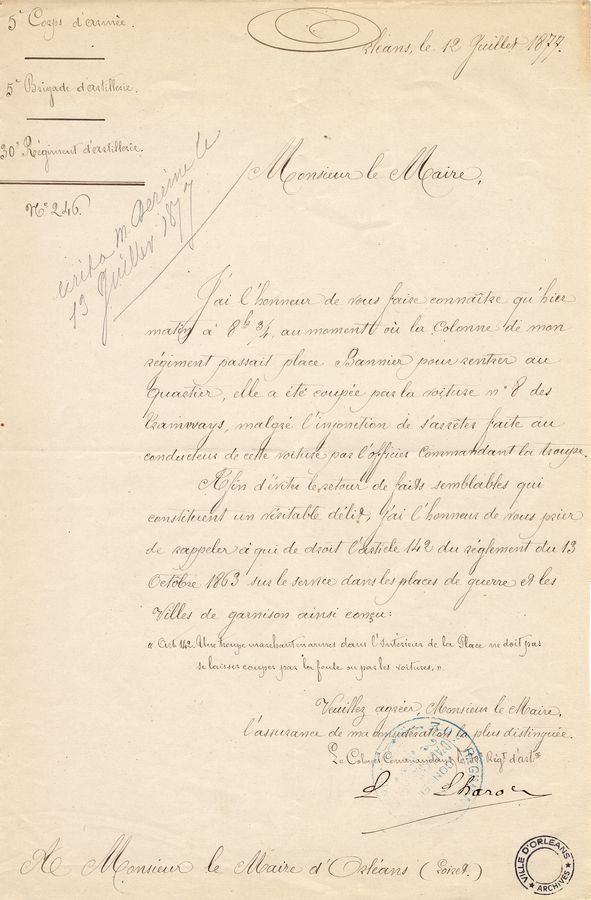 5e Corps d'armée.
5e Brigade d'artillerie.
30e Régiment d'artillerie.
N° 246.
Orléans, le 12 Juillet 1877.
Monsieur le Maire,
le
13 Juillet 1877
J'ai l'honneur de vous faire connaître qu'hier
matin à 8h 3/4, au moment où la Colonne de mon
régiment passait place Bannier pour rentrer au
Quartier, elle a été coupée par la voiture n° 8 des
Tramways, malgré l'injonction de s'arrêter faite au
conducteur de cette voiture par l'officier Commandant la troupe.
Afin d'éviter le retour de faits semblables qui
constituent un véritable délit, j'ai l'honneur de vous prier
de rappeler à qui de droit l'article 142 du règlement du 13
Octobre 1863 sur le service dans les places de guerre et les
Villes de garnison ainsi conçu:
« Art. 142. Une troupe marchant en armes dans l'Intérieur de la Place ne doit pas
se laisser couper par la foule ou par les voitures. »
Veuillez agréer, Monsieur le Maire,
l'assurance de ma considération la plus distinguée.
Le Colonel Commandant le 30e Régt d'artie
A Monsieur le Maire d'Orléans (Loiret.)
VILLE D'ORLEANS
ARCHIVES